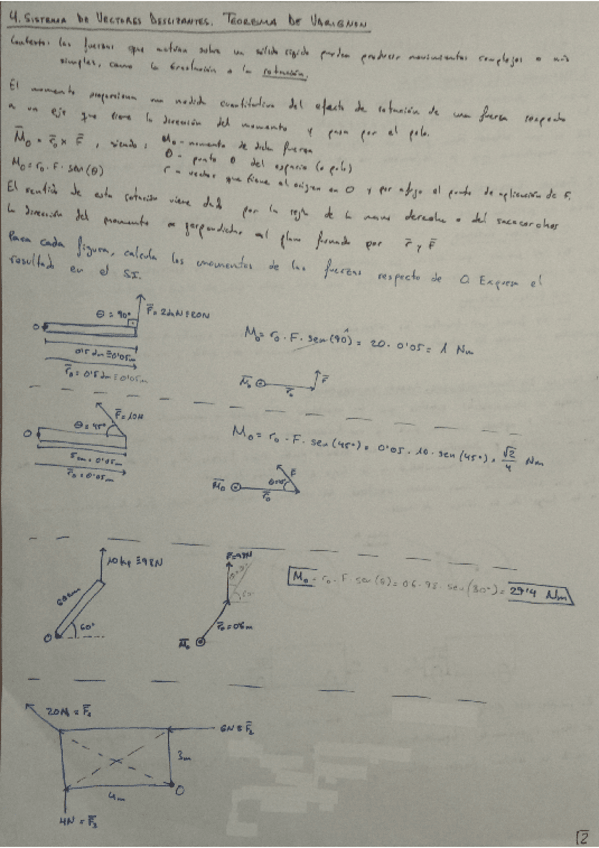 4. SISTEMA DE VECTORES DESLIZANTES. TEOREMA DE VARIGNON
Contexto: las fuerzas que actúan sobre un sólido rígido pueden producir movimientos complejos o más
simples, como la traslación o la rotación.
El momento proporciona una medida cuantitativa del efecto de rotación de una fuerza respecto
a un eje que tiene la dirección del momento y pasa por el polo.
M̅o = r̅o x F̅, siendo: Mo - momento de dicha fuerza
Mo = ro · F · sen(θ)
del espacio (o polo)
r = vector que tiene el origen en O y por el punto de aplicación de F.
El sentido de esta rotación viene dado por la regla de la mano derecha o del sacacorchos
la dirección del momento es perpendicular al plano formado por r̅ y F̅
Para cada figura, calcula los momentos de las fuerzas respecto de O. Expresa el
resultado en el SI.
θ = 90°
O
0'5 dm ≡ 0'05m
r̅o = 0'5 dm ≡ 0'05m
Mo = ro · F · sen(90°) = 20 · 0'05 = 1 Nm
M̅o
r̅o
F̅
F̅ = 10N
θ = 45°
O
5cm = 0'05m
r̅o = 0'05m
Mo = ro · F · sen(45°) = 0'05 · 10 · sen(45°) = √2/4 Nm
M̅o
r̅o
F̅
10 kp ≡ 98N
60cm
60°
O
F=98N
r̅o = 0'6m
M̅o
Mo = ro · F · sen(θ) = 0'6 · 98 · sen(30°) = 29'4 Nm
20N = F̅₁
6N ≡ F̅₂
3m
4m
O
4N = F̅₃
2